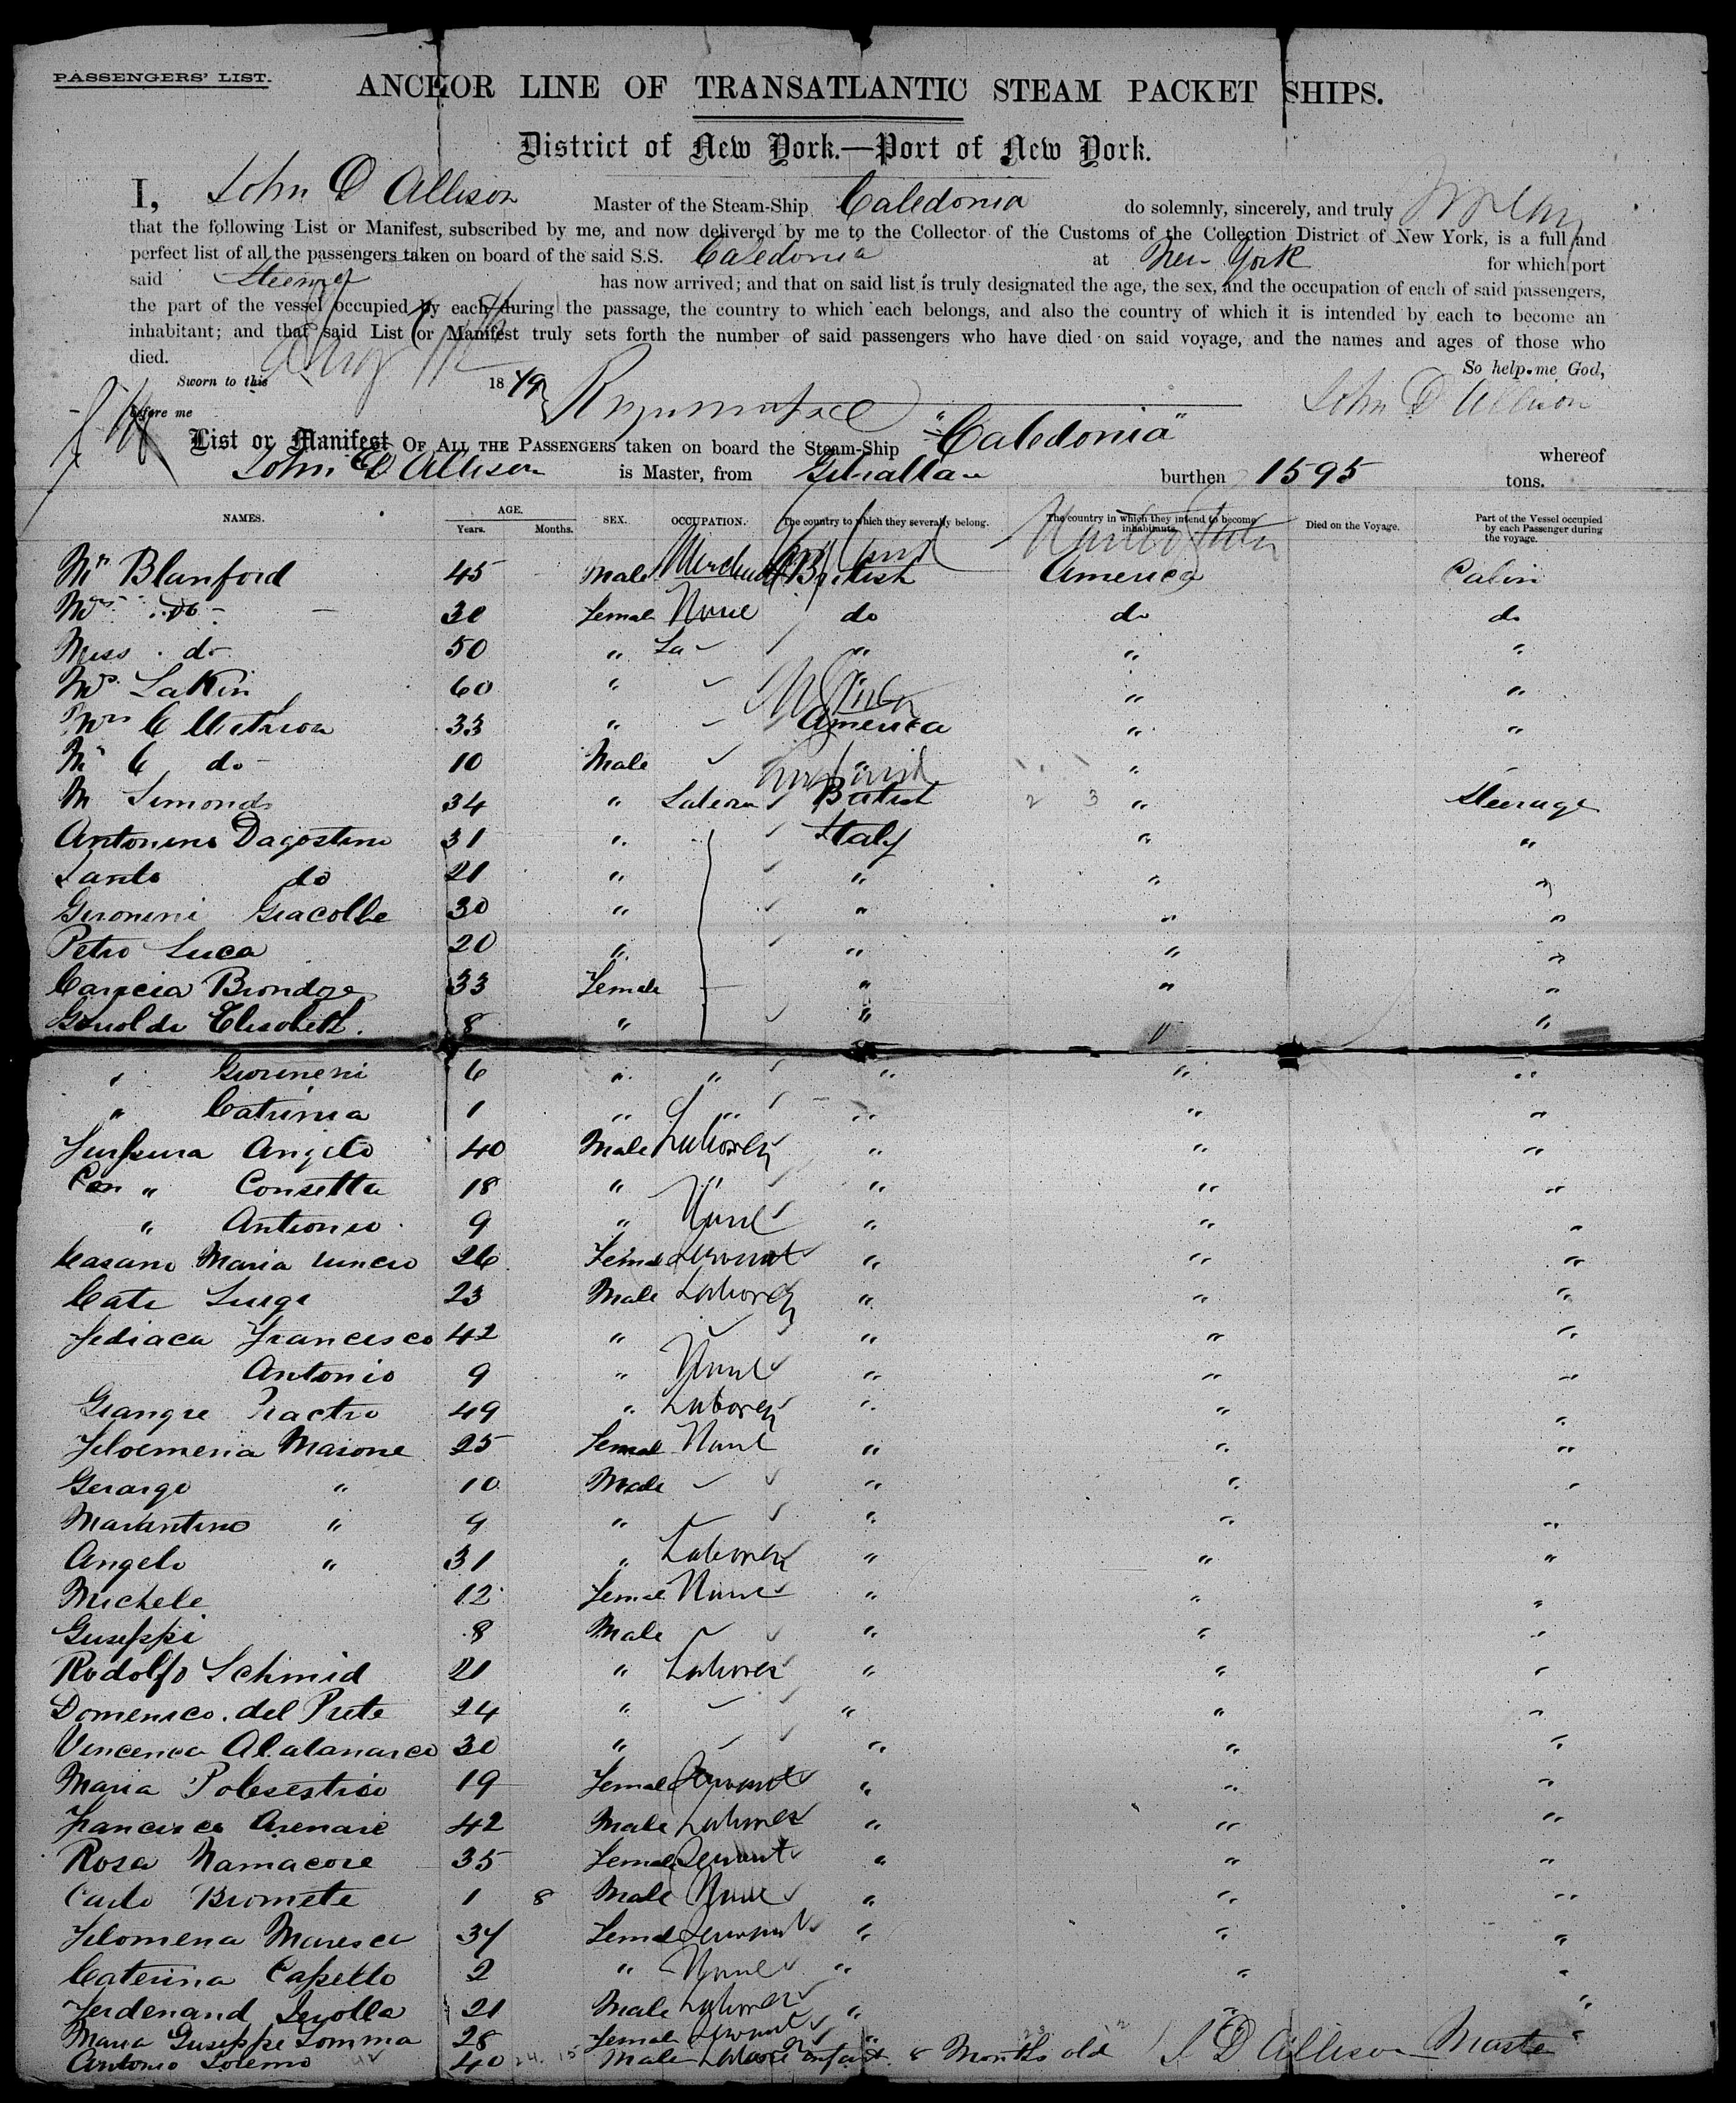 PASSENGERS' LIST.
ANCHOR LINE OF TRANSATLANTIC STEAM PACKET SHIPS.
District of New York.—Port of New York.
I, John D Allison Master of the Steam-Ship Caledonia do solemnly, sincerely, and truly
that the following List or Manifest, subscribed by me, and now delivered by me to the Collector of the Customs of the Collection District of New York, is a full and
perfect list of all the passengers taken on board of the said S.S. Caledonia at New York for which port
said Steamer has now arrived; and that on said list is truly designated the age, the sex, and the occupation of each of said passengers,
the part of the vessel occupied by each during the passage, the country to which each belongs, and also the country of which it is intended by each to become an
inhabitant; and that said List or Manifest truly sets forth the number of said passengers who have died on said voyage, and the names and ages of those who
died. So help me God,
Sworn to this Aug 1879
before me John D Allison
List or Manifest OF ALL THE PASSENGERS taken on board the Steam-Ship "Caledonia" whereof
John D Allison is Master, from Gibraltar burthen 1595 tons.
NAMES. AGE. Years. Months. SEX. OCCUPATION. The country to which they severally belong. The country in which they intend to become inhabitants. Died on the Voyage. Part of the Vessel occupied by each Passenger during the voyage.
England United States
Mr Blanford 45 Male Merchant British America Cabin
Mrs do 30 Female None do do do
Miss do 50 " " " "
Mrs Lakin 60 " " " "
Mrs C 33 " America " "
Mr C do 10 Male " "
England
M Simonds 34 " British 2 3 " Steerage
Antonino Dagostino 31 " Italy " "
Santo do 21 " " " "
Geronimi Giacolbe 30 " " " "
Petro Luca 20 " " " "
Brondge 33 Female " " "
Elisabeth 8 " " " "
" 6 " " " " "
" Catrinia 1 " " " " "
Angelo 40 Male Laborer " " "
" Consetta 18 " " " " "
" Antonio 9 " None " " "
Casano Maria 26 Female Servant " " "
Luigi 23 Male Laborer " " "
Fediaca Francesco 42 " " " "
Antonio 9 " None " " "
49 " Laborer " " "
Filomena Maione 25 Female None " " "
Gerargo " 10 Male " " "
Marantino " 9 " " " "
Angelo " 31 " Laborer " " "
Michele 12 Female None " " "
Guseppi 8 Male " " "
Rodolfo Schmid 21 " Laborer " " "
Domenico del Prete 24 " " " "
30 " " " "
Maria 19 Female Servant " " "
Francisco Arenare 42 Male Laborer " " "
Rosa Namacore 35 Female Servant " " "
Carlo Bromete 1 8 Male None " " "
Filomena Maresca 34 Female Servant " " "
Caterina Capello 2 " None " " "
Ferdenand 21 Male Laborer " " "
Maria Guseppe Somma 28 Female Servant "
Antonio 40 Male Laborer infant 8 Months old J D Allison Master